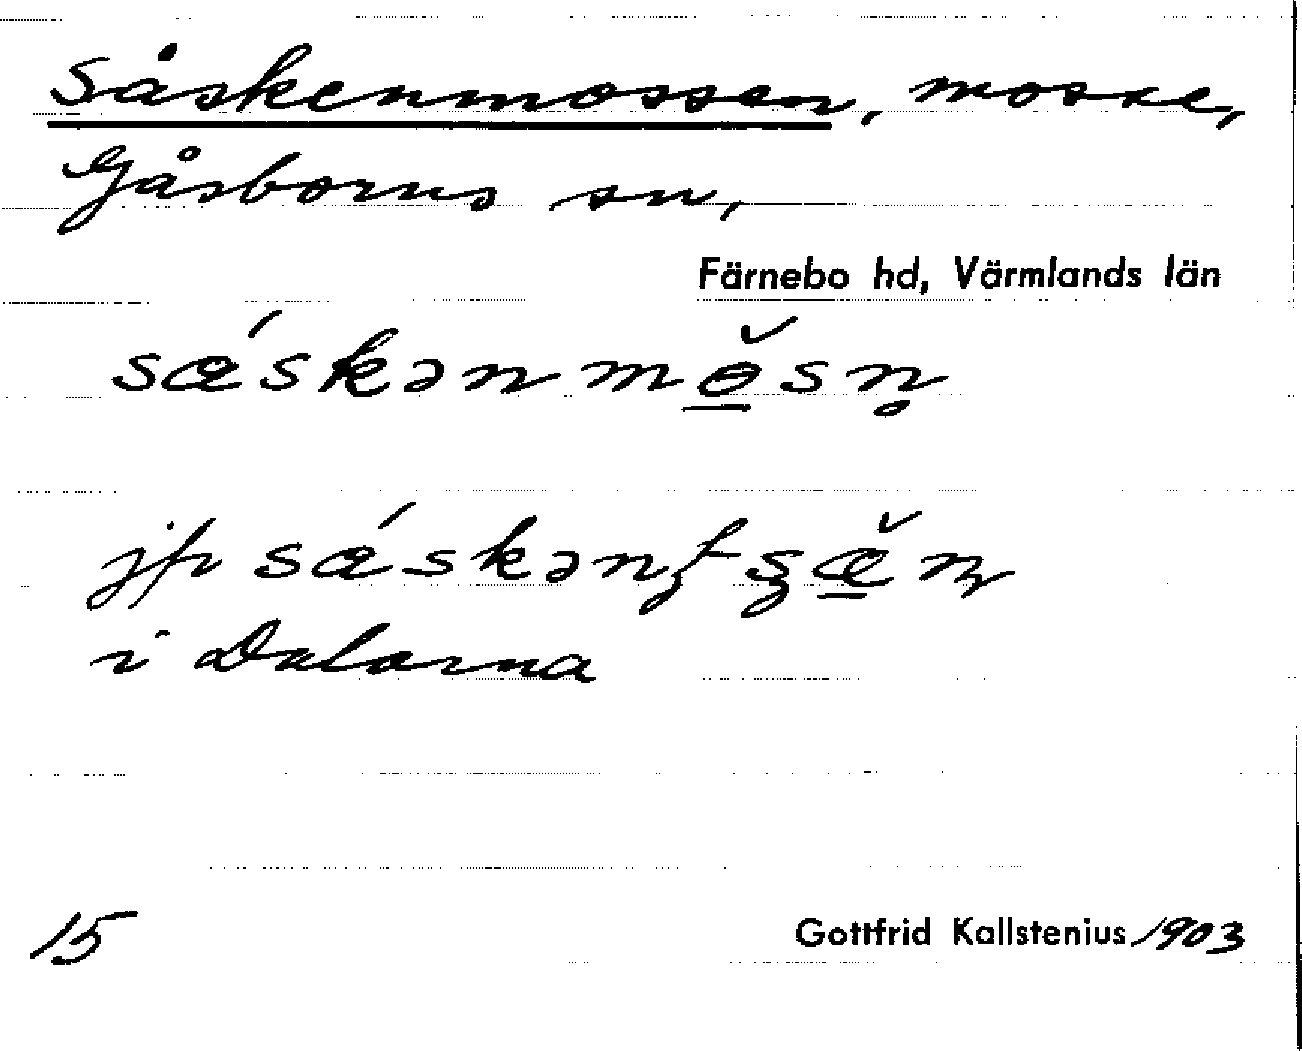 Såskenmossen, mosse,
Gåsborns sn,
Färnebo hd, Värmlands län
sǽskənmɵ̠̌sn̥
jfr
i Dalarna
15 Gottfrid Kallstenius 1903